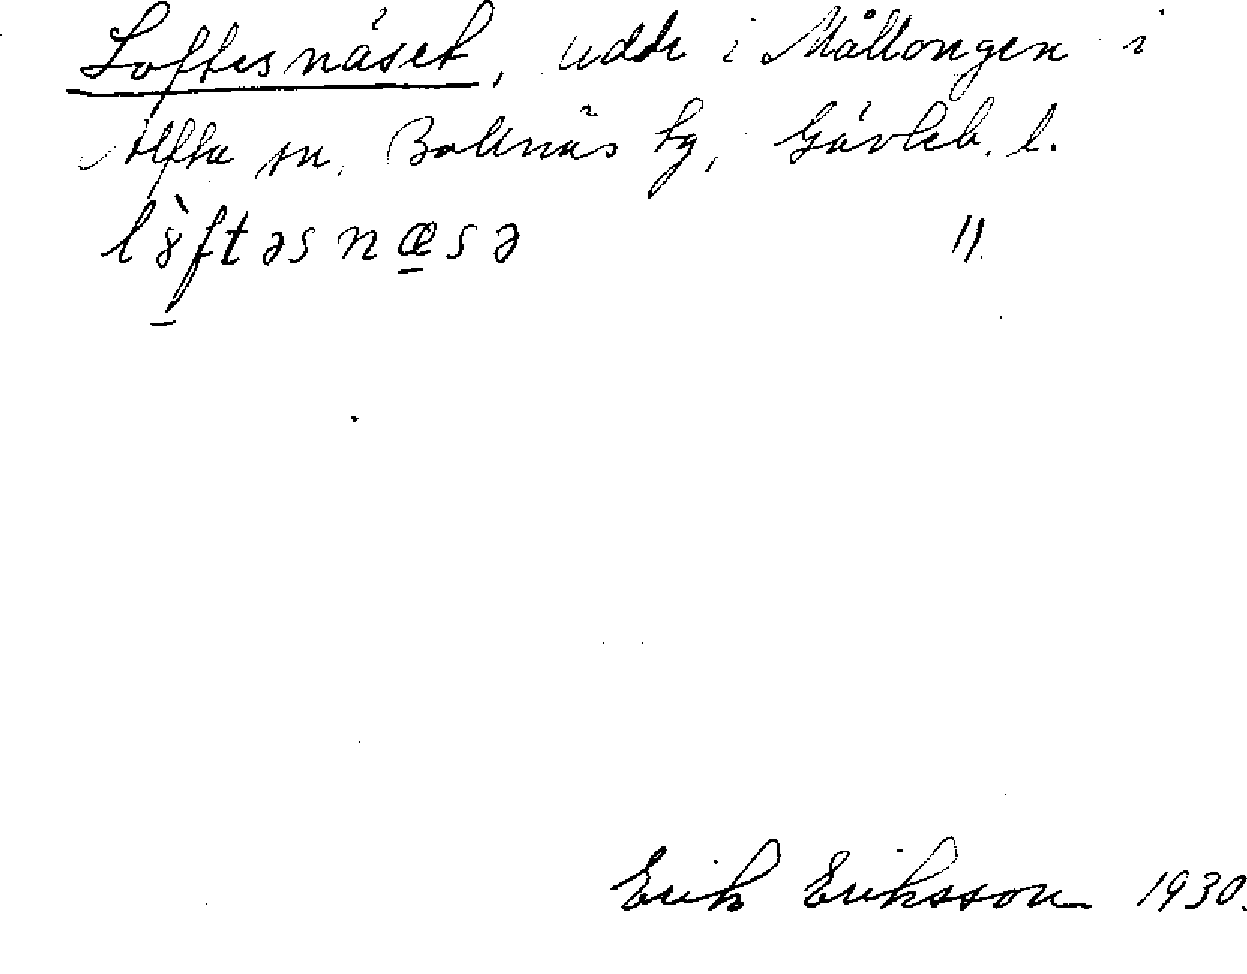 Loftesnäset, udde i Mållongen i
Alfta sn. Bollnäs tg, Gävleb. l.
lö̀ftəsnæsə 11.
Erik Eriksson 1930.